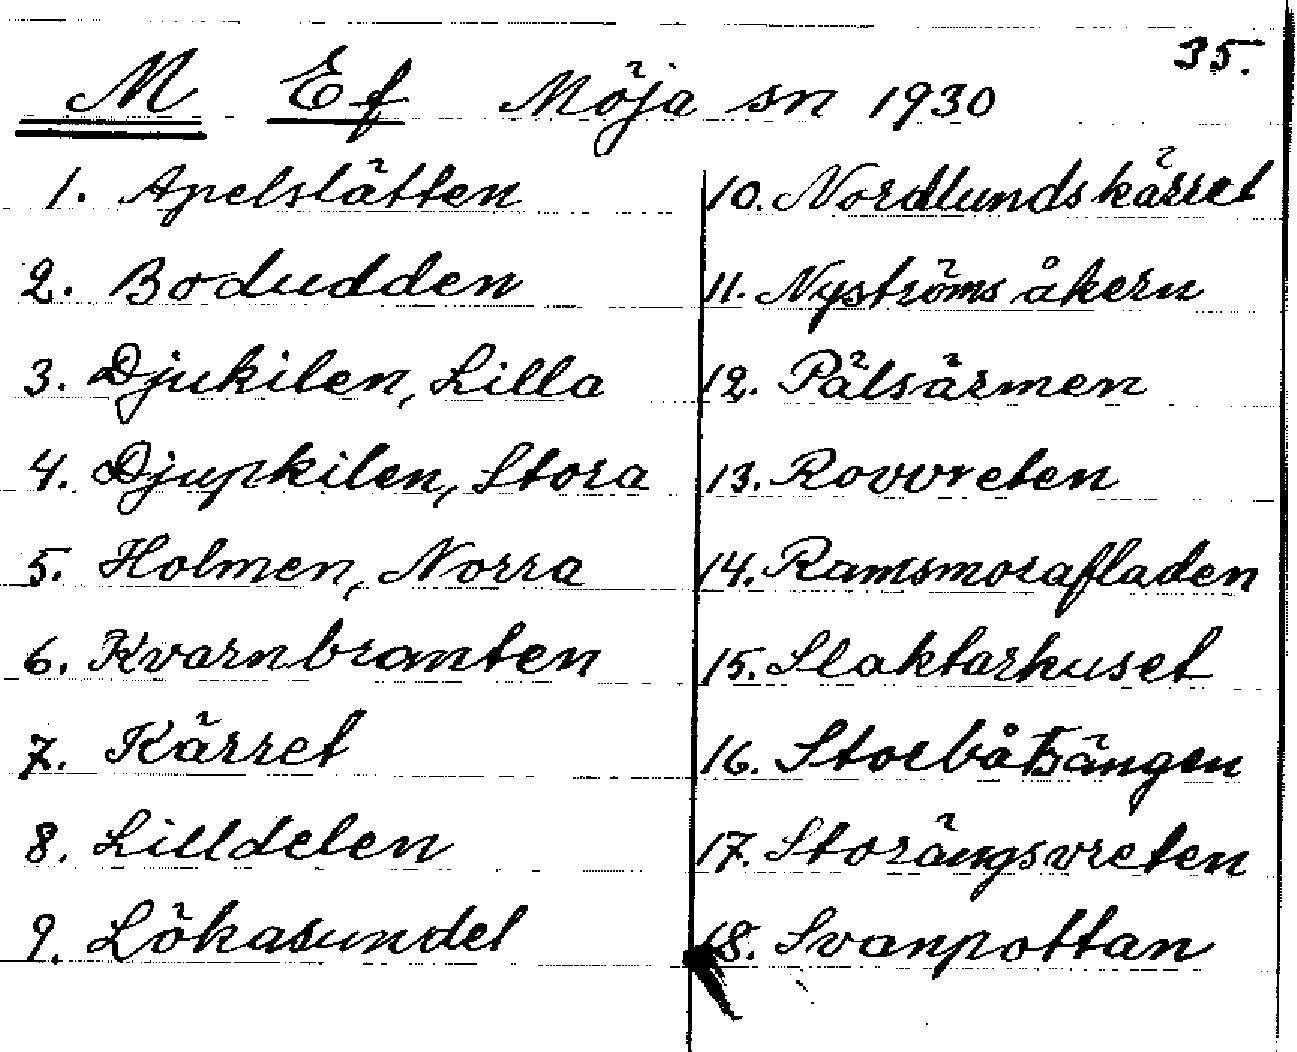 35.
M Ef Möja sn 1930
1. Apelslätten
2. Bodudden
3. Djukilen, Lilla
4. Djupkilen, Stora
5. Holmen, Norra
6. Kvarnbranten
7. Kärret
8. Lilldelen
9. Lökasundet
10. Nordlundskärret
11. Nyströms åkern
12. Pälsärmen
13. Rovvreten
14. Ramsmorafladen
15. Slaktarhuset
16. Storbåtsängen
17. Storängsvreten
18. Svanpottan